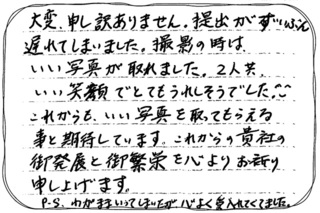 大変、申し訳ありません。提出がずいぶん
遅れてしまいました。撮影の時は
いい写真が取れました。2人共、
いい笑顔でとてもうれしそうでした。
これからも、いい写真を取ってもらえる
事と期待しています。これからの貴社の
御発展と御繁栄を心よりお祈り
申し上げます。
P.S. わがままいってしまいたが心よく受入れてくてました。